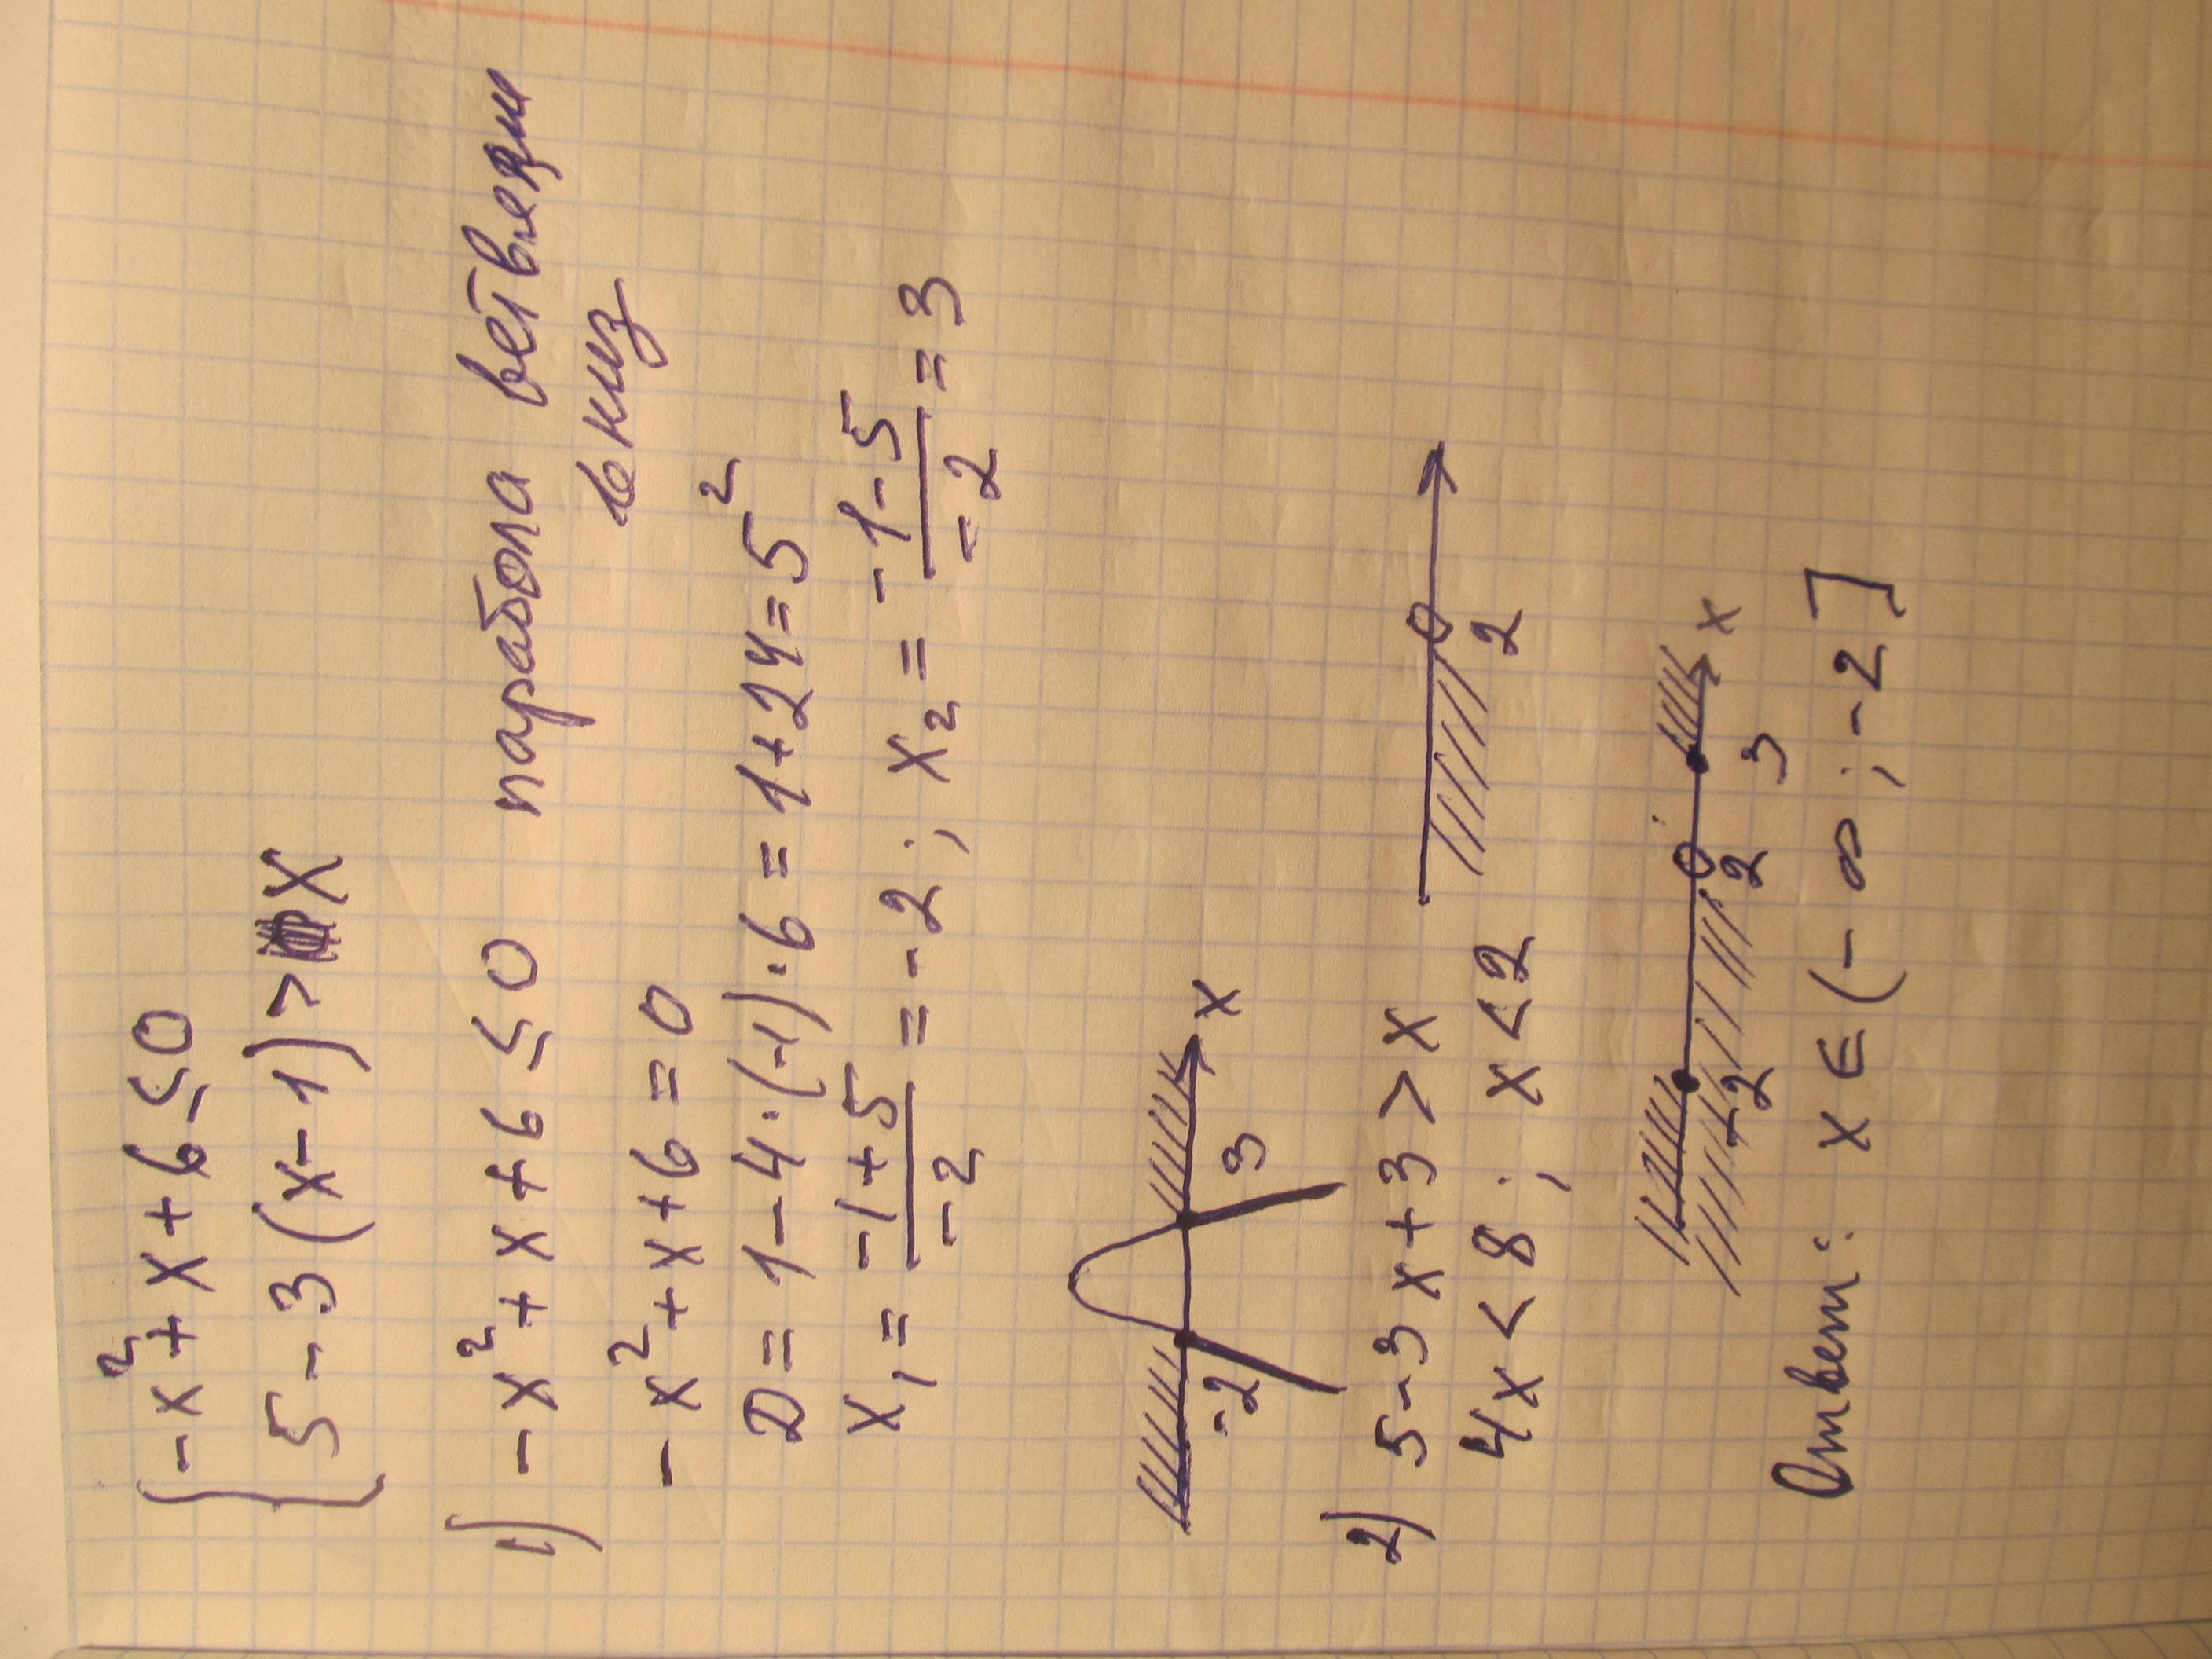 { -x² + x + 6 ≤ 0
5 - 3(x-1) > x
1) -x² + x + 6 ≤ 0 парабола ветвями
вниз
-x² + x + 6 = 0
D = 1 - 4·(-1)·6 = 1+24 = 5²
x₁ = (-1+5)/(-2) = -2; x₂ = (-1-5)/(-2) = 3
-2 3 x
2) 5 - 3x + 3 > x
4x < 8; x < 2 2
-2 2 3 x
Ответ: x ∈ (-∞; -2]